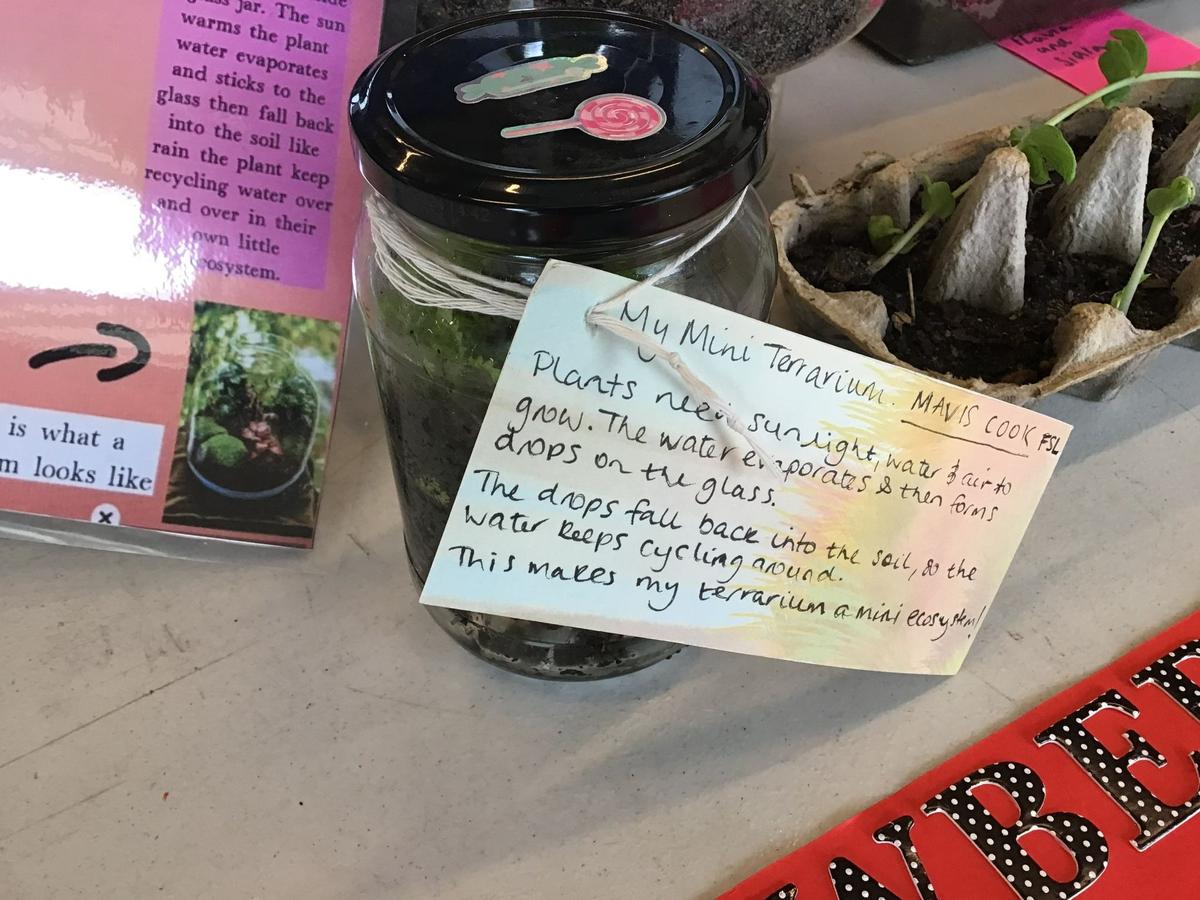 glass jar. The sun
warms the plant
water evaporates
and sticks to the
glass then fall back
into the soil like
rain the plant keep
recycling water over
and over in their
own little
ecosystem.
is what a
m looks like
My Mini Terrarium. MAVIS COOK FSL
Plants need sunlight, water & air to
grow. The water evaporates & then forms
drops on the glass.
The drops fall back into the soil, & the
water keeps cycling around.
This makes my terrarium a mini ecosystem!
and
WBE